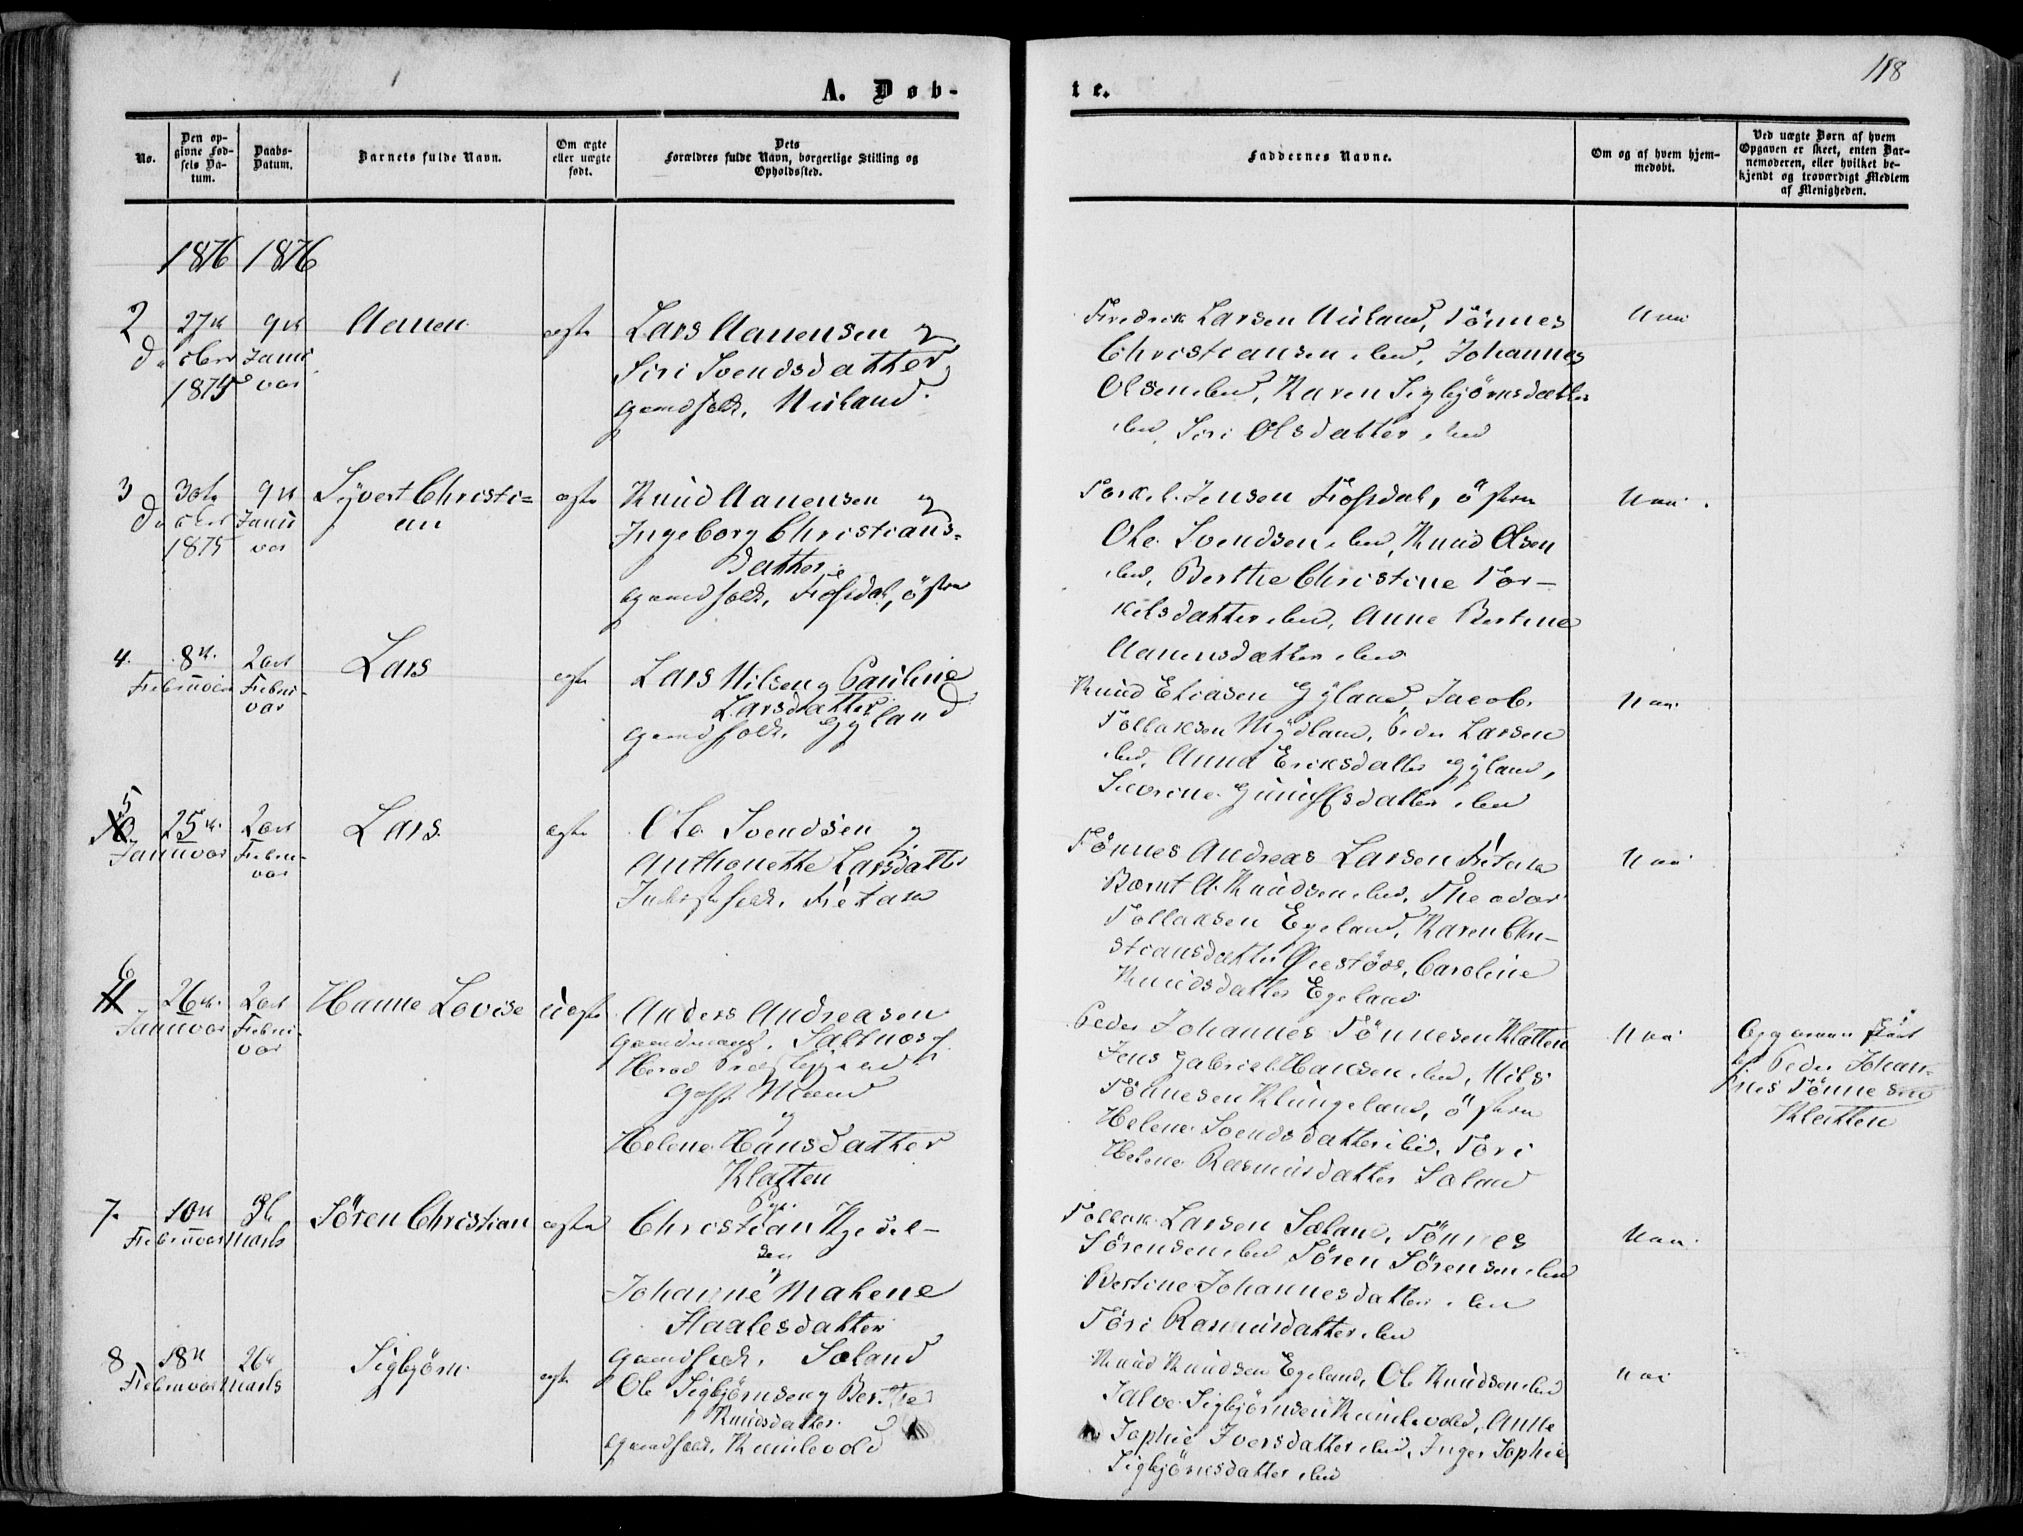 118
A. Døb-
te.
No.
Den op-
givne Fød-
sels Da-
tum.
Daabs-
Datum.
Barnets fulde Navn.
Om ægte
eller uægte
født.
Dets
Forældres fulde Navn, borgerlige Stilling og
Opholdssted.
Faddernes Navne.
Om og af hvem hjem-
medøbt.
Ved uægte Børn af hvem
Opgaven er skeet, enten Bar-
nemoderen, eller hvilket be-
kjendt og troværdigt Medlem
af Menigheden.
1876 1876
2
27
9
Janu
var
1875
Aanen
ægte
Lars Aanensen og
Siri Svendsdatter
gaardfolk, Nuland.
Fredrik Larsen Nuland, Tönnes
Christiansen ibid, Johannes
Olsen ibid, Karen Sigbjörnsdatter
ibid, Siri Olsdatter ibid
Nei
3
30te
1875
9
Janu
var
Syvert Christi=
an
ægte
Knud Aanensen og
Ingeborg Christians-
datter
gaardfolk, Fosdal, östre
Torkel Jensen Fosdal, östre
Ole Svendsen ibid, Knud Olsen
ibid, Berthe Christine Tor-
kelsdatter ibid, Anne Bertine
Aanensdatter ibid
Nei.
4.
8
Februar
20
Febru-
var
Lars
ægte
Lars Nilsen og Pauline
Larsdatter
gaardfolk. Gyland
Knud Eliasen Gyland, Jacob
Tollaksen Mydland, Peder Larsen
ibid, Anna Eriksdatter Gyland,
Severine Gunulfsdatter ibid
Nei
5
25
Januvar
20
Febru-
var
Lars
ægte
Ole Svendsen og
Anthonette Larsdatter
Tönnes Andreas Larsen
Bernt A. Knudsen ibid, Theodor
Tollaksen Egeland, Karen Chri-
stiansdatter, Caroline
Knudsdatter Egeland
Nei
6
26
Januvar
20
Febru-
var
Hanne Lovise
uægte
Anders Andreasen
gaardmand,
gift Mand
og
Helene Hansdatter
Klatten
Pige
Peder Johannes Tönnesen Klatten
Jens Gabriel Hansen ibid, Nils
Tönnesen Klungeland, östre
Helene Svendsdatter ibid, Töri
Helene Rasmusdatter Soland
Nei
Opgaven skeet
af Peder Johan-
nes Tönnesen
Klatten
7.
10
Februar
3
Marts
Sören Christian
ægte
Christian Kjedel-
sen
og
Johanne Malene
Haalesdatter
gaardfolk. Soland
Tollak Larsen Soland, Tönnes
Sörensen ibid Sören Sörensen ibid
Bertine Johannesdatter ibid
Töri Rasmusdatter ibid
Nei.
8
18
Februar
26
Marts
Sigbjörn
ægte
Ole Sigbjörnsen og Berthe
Knudsdatter
gaardfolk. Kumlevold
Knud Knudsen Egeland, Ole Knudsen ibid
Salve Sigbjörnsen Kumlevold, Anne
Sophie Iversdatter ibid, Inger Sophie
Sigbjörnsdatter ibid
Nei